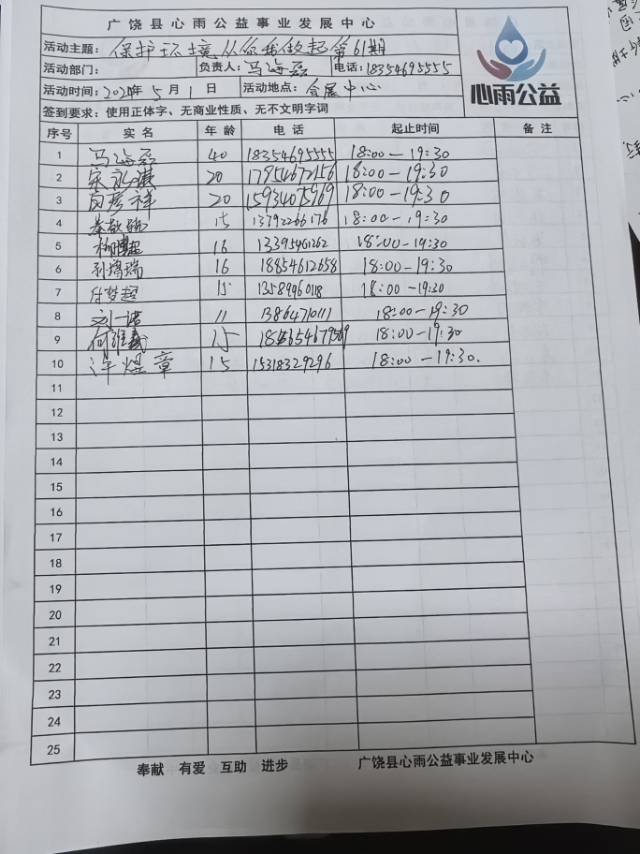 广饶县心雨公益事业发展中心
活动主题: 保护环境从你我做起第61期
活动部门: 负责人: 马海磊 电话: 18354695555
活动时间: 2024年5月1日 活动地点: 会展中心
签到要求: 使用正体字、无商业性质、无不文明字词
心雨公益
序号 实名 年龄 电话 起止时间 备注
1 马海磊 40 18354695555 18:00-19:30
2 20 17954672156 18:00-19:30
3 20 15934075969 18:00-19:30
4 15 13792266176 18:00-19:30
5 16 13395461262 18:00-19:30
6 孙瑞瑞 16 18854612658 18:00-19:30
7 任梦超 15 13589960118 18:00-19:30
8 刘一诺 11 13864710111 18:00-19:30
9 15 18:00-19:30
10 许煜章 15 15318329296 18:00-19:30.
11
12
13
14
15
16
17
18
19
20
21
22
23
24
25
奉献 有爱 互助 进步 广饶县心雨公益事业发展中心